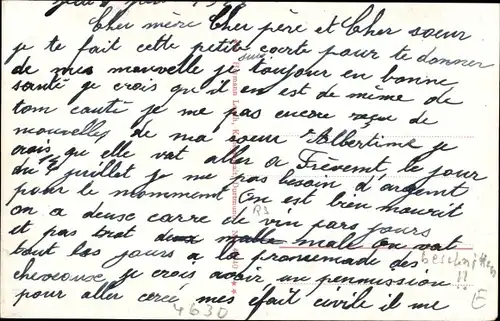 Cher mère Cher père et Cher soeur
je te fait cette petite carte pour te donner
de mes nouvelle je suis toujour en bonne
santé je crois qu'il en est de même de
ton couté je me pas encore reçue de
nouvelles de ma soeur Albertine je
crois qu'elle vat aller a Frévent le jour
du 14 juillet je me pas besoin d'argent
pour le momment On est bien nourit
on a deuse carre de vin pars jours
et pas trot male On vat
tout les jours a la promemade des
cheveaux je crois avoir un permission
pour aller cercé mes efait civile il me
beschnitten
!!
R3
4630
E